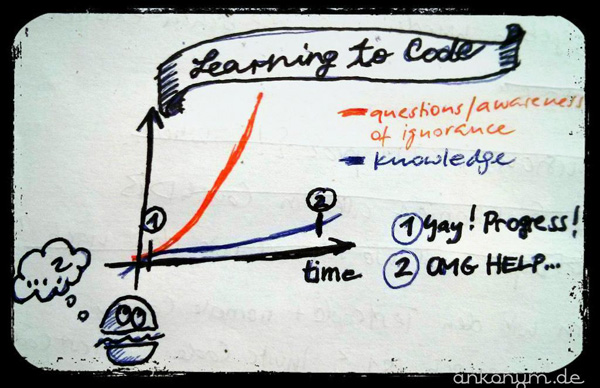 Learning to Code
questions/awareness
of ignorance
knowledge
1
2
1 Yay! Progress!
2 OMG HELP...
time
?
ankonym.de